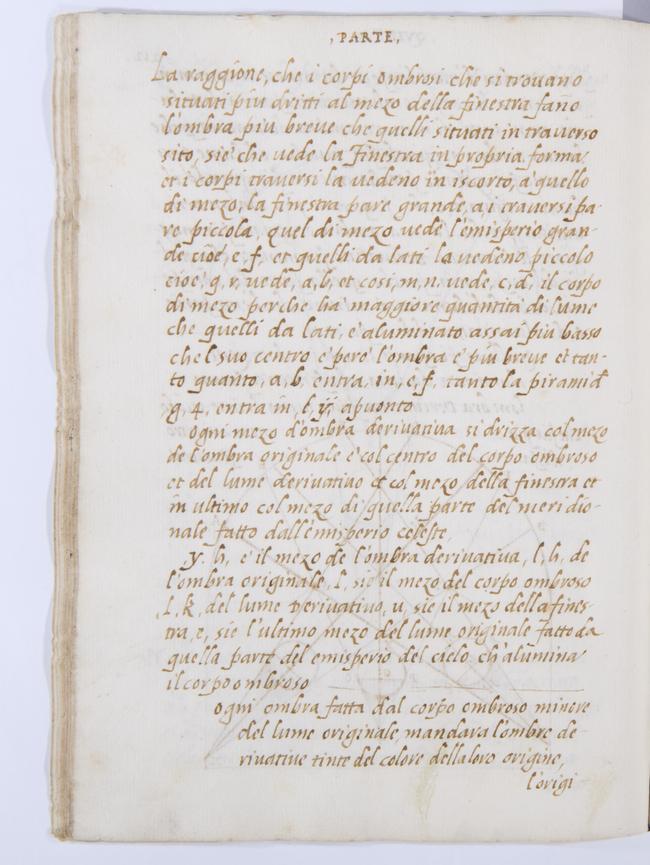 ,PARTE,
La raggione, che i corpi ombrosi che si trouano
situati piu dritti al mezo della finestra fano
l'ombra piu breue che quelli situati in trauerso
sito, sie che uede la Finestra in propria forma
et i corpi trauersi la uedeno in iscorto, a' quello
di mezo, la finestra pare grande, a, i trauersi pa-
re piccola, quel di mezo uede l'emisperio gran-
de cioe', e, f, et quelli da lati la uedeno piccolo
cioe', q, r, uede, a, b, et cosi, m, n, uede, c, d, il corpo
di mezo perche ha maggiore quantita di lume
che quelli da lati, e' aluminato assai piu basso
che l suo centro e pero l'ombra e' piu breue et tan-
to quanto, a, b, entra, in, e, f, tanto la piramid
g, 4, entra in, l, y, apuonto
ogni mezo d'ombra deriuatiua si drizza col mezo
de l'ombra originale e' col centro del corpo ombroso
et del lume deriuatiuo et col mezo della finestra et
in ultimo col mezo di quella parte del meridio-
nale fatto dall'emisperio celeste,
,y. h, e il mezo de l'ombra deriuatiua, l, h, de
l'ombra originale, l, sie il mezo del corpo ombroso
,l, k, del lume deriuatiuo, u, sie il mezo della fines-
tra, e, sie l'ultimo mezo del lume originale fatto da
quella parte del emisperio del cielo ch'alumina
il corpo ombroso
ogni ombra fatta dal corpo ombroso minore
del lume originale mandara l'ombre de-
riuatiue tinte del colore della loro origine,
l'origi